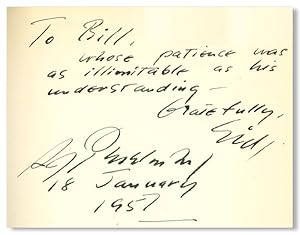 To Bill,
whose patience was
as illimitable as his
understanding —
Gratefully,
Sid.
18 January
1957